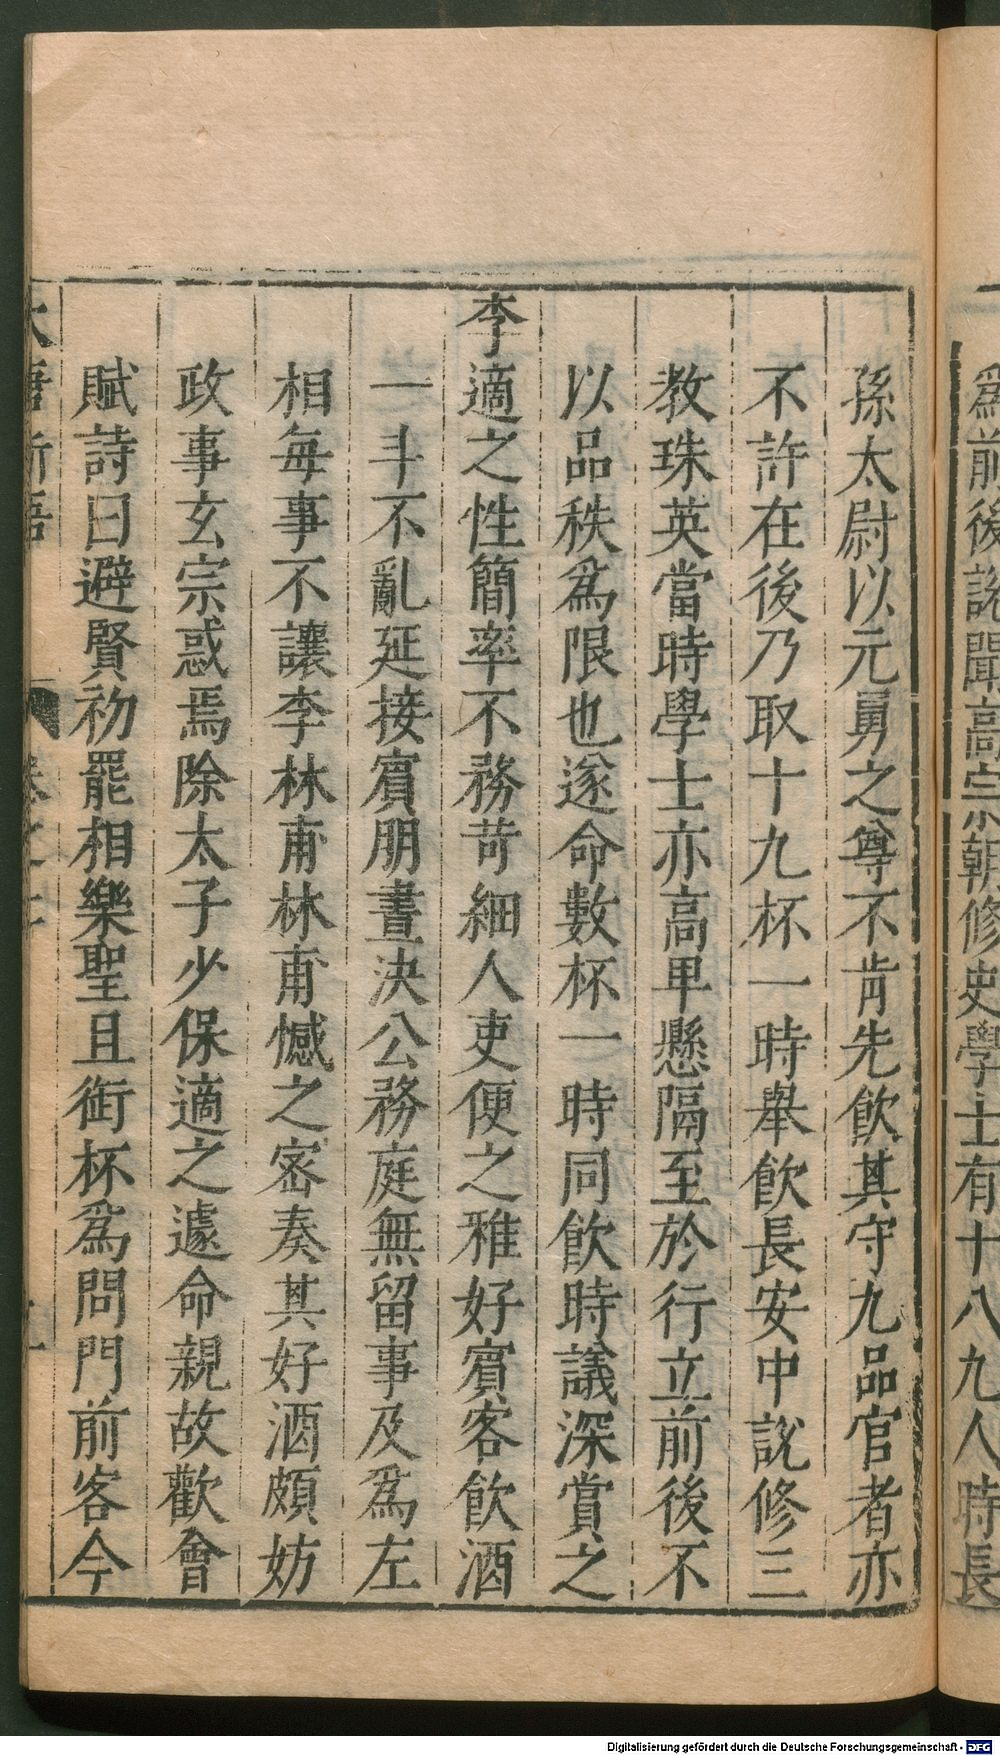 爲前後說聞高宗朝修史學士有十八九人時長
孫太尉以元舅之尊不肯先飲其守九品官者亦
不許在後乃取十九杯一時舉飲長安中說修三
教珠英當時學士亦高甲懸隔至於行立前後不
以品秩爲限也遂命數杯一時同飲時議深賞之
李適之性簡率不務苛細人吏便之雅好賓客飲酒
一斗不亂延接賓朋晝决公務庭無留事及爲左
相每事不讓李林甫林甫憾之密奏其好酒頗妨
政事玄宗惑焉除太子少保適之遽命親故歡會
賦詩曰避賢初罷相樂聖且銜杯爲問門前客今
Digitalisierung gefördert durch die Deutsche Forschungsgemeinschaft - DFG